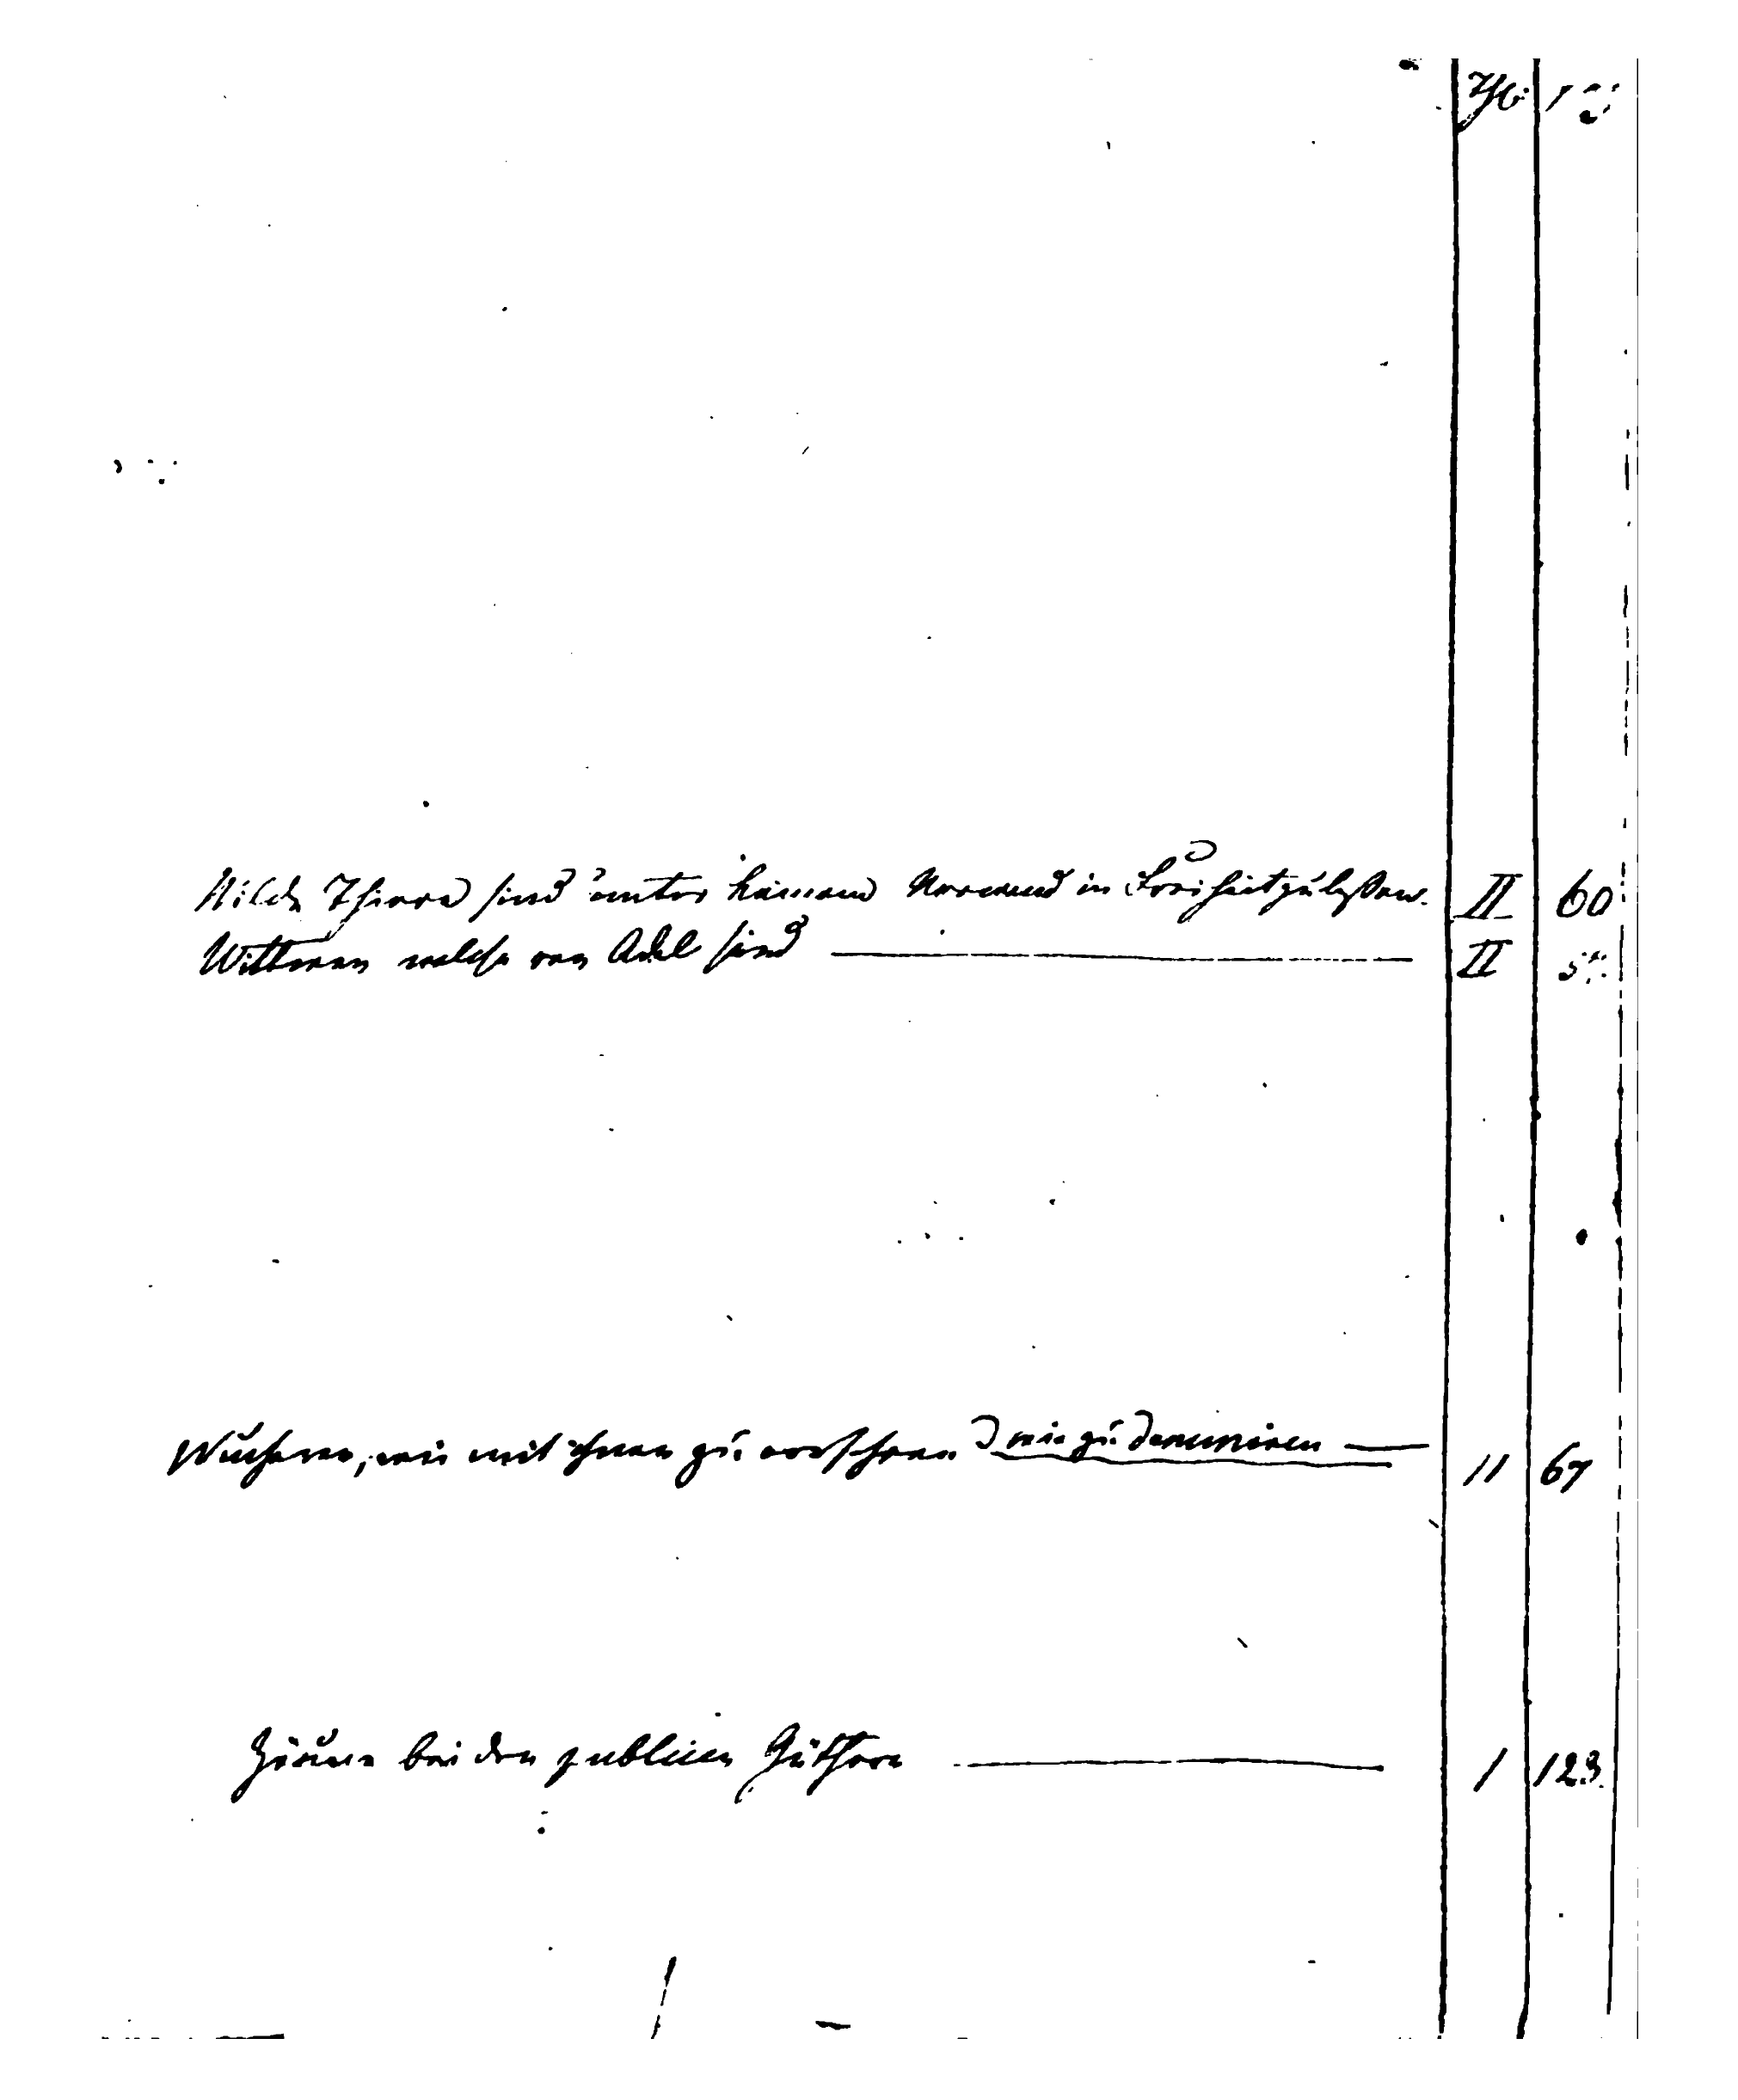 Th:
Wilde Thiere sind unter keinem Vorwand in Freiheit zu laßen. II 60
Wittwen welche von Adel sind II
Wucherer, wie mit ihnen zu verfahren wie zu denunciren II 67
Zäune bei den publiquen Güthern I 123.